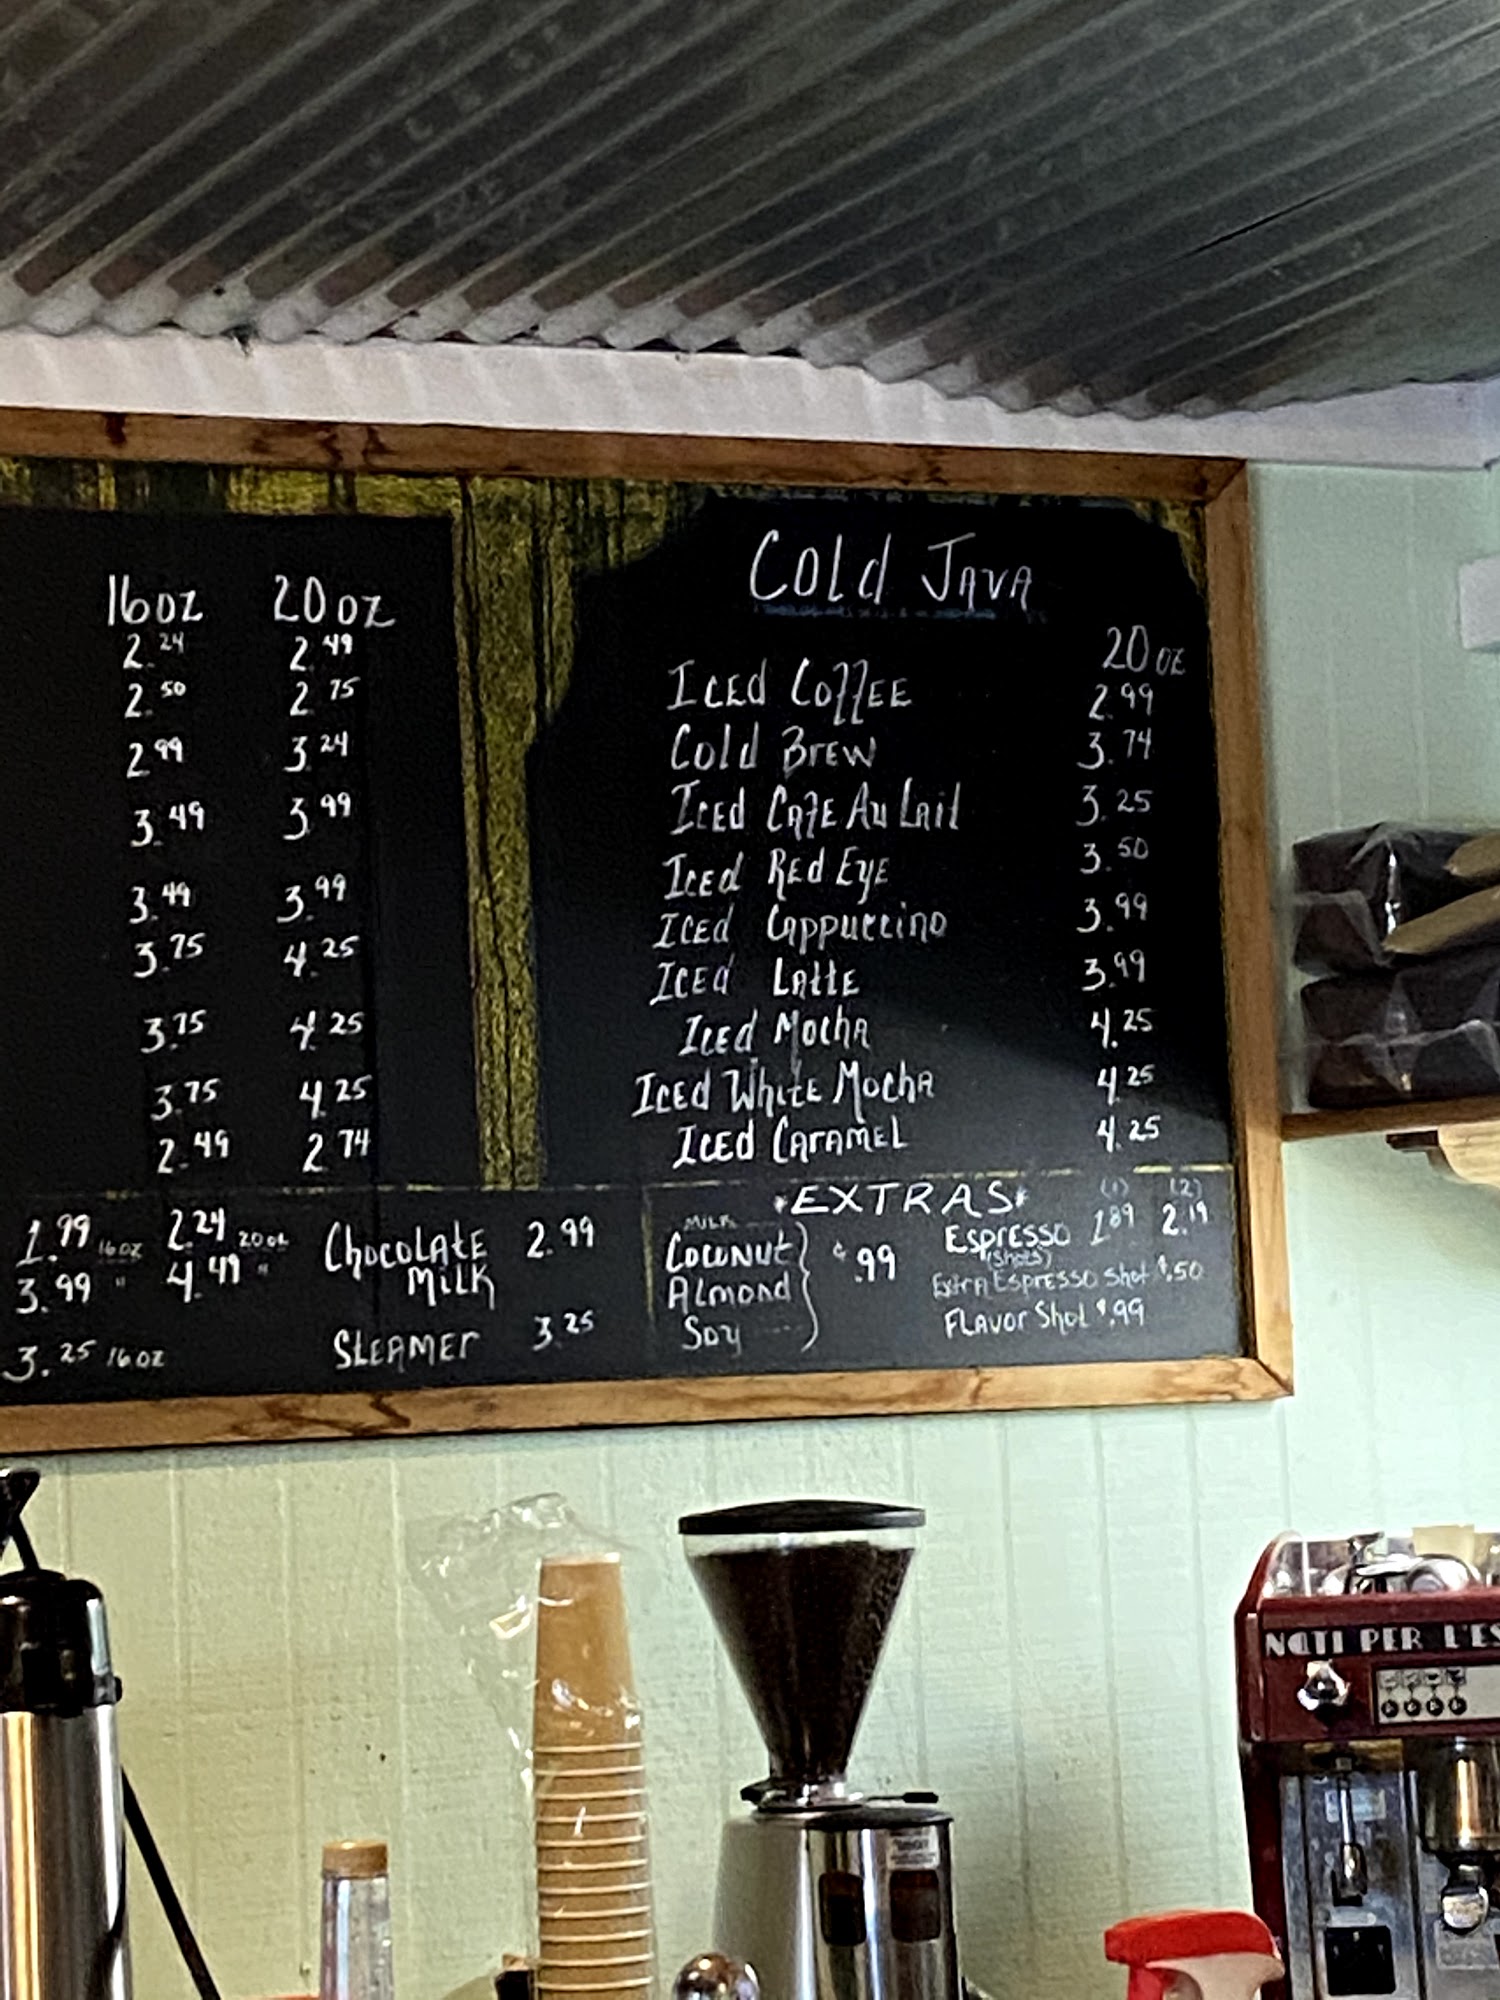 16oz 20oz
2.24 2.49
2.50 2.75
2.99 3.24
3.49 3.99
3.49 3.99
3.75 4.25
3.75 4.25
3.75 4.25
2.49 2.74
1.99 16oz 2.24 20oz
3.99 " 4.49 "
3.25 16oz
Chocolate 2.99
Milk
Steamer 3.25
Cold Java
20oz
Iced Coffee 2.99
Cold Brew 3.74
Iced Cafe Au Lait 3.25
Iced Red Eye 3.50
Iced Cappuccino 3.99
Iced Latte 3.99
Iced Mocha 4.25
Iced White Mocha 4.25
Iced Caramel 4.25
*EXTRAS*
Milk
Coconut
Almond
Soy
$.99
(1) (2)
Espresso 1.89 2.19
(shots)
Extra Espresso Shot $.50
Flavor Shot $.99
NATI PER L'ES